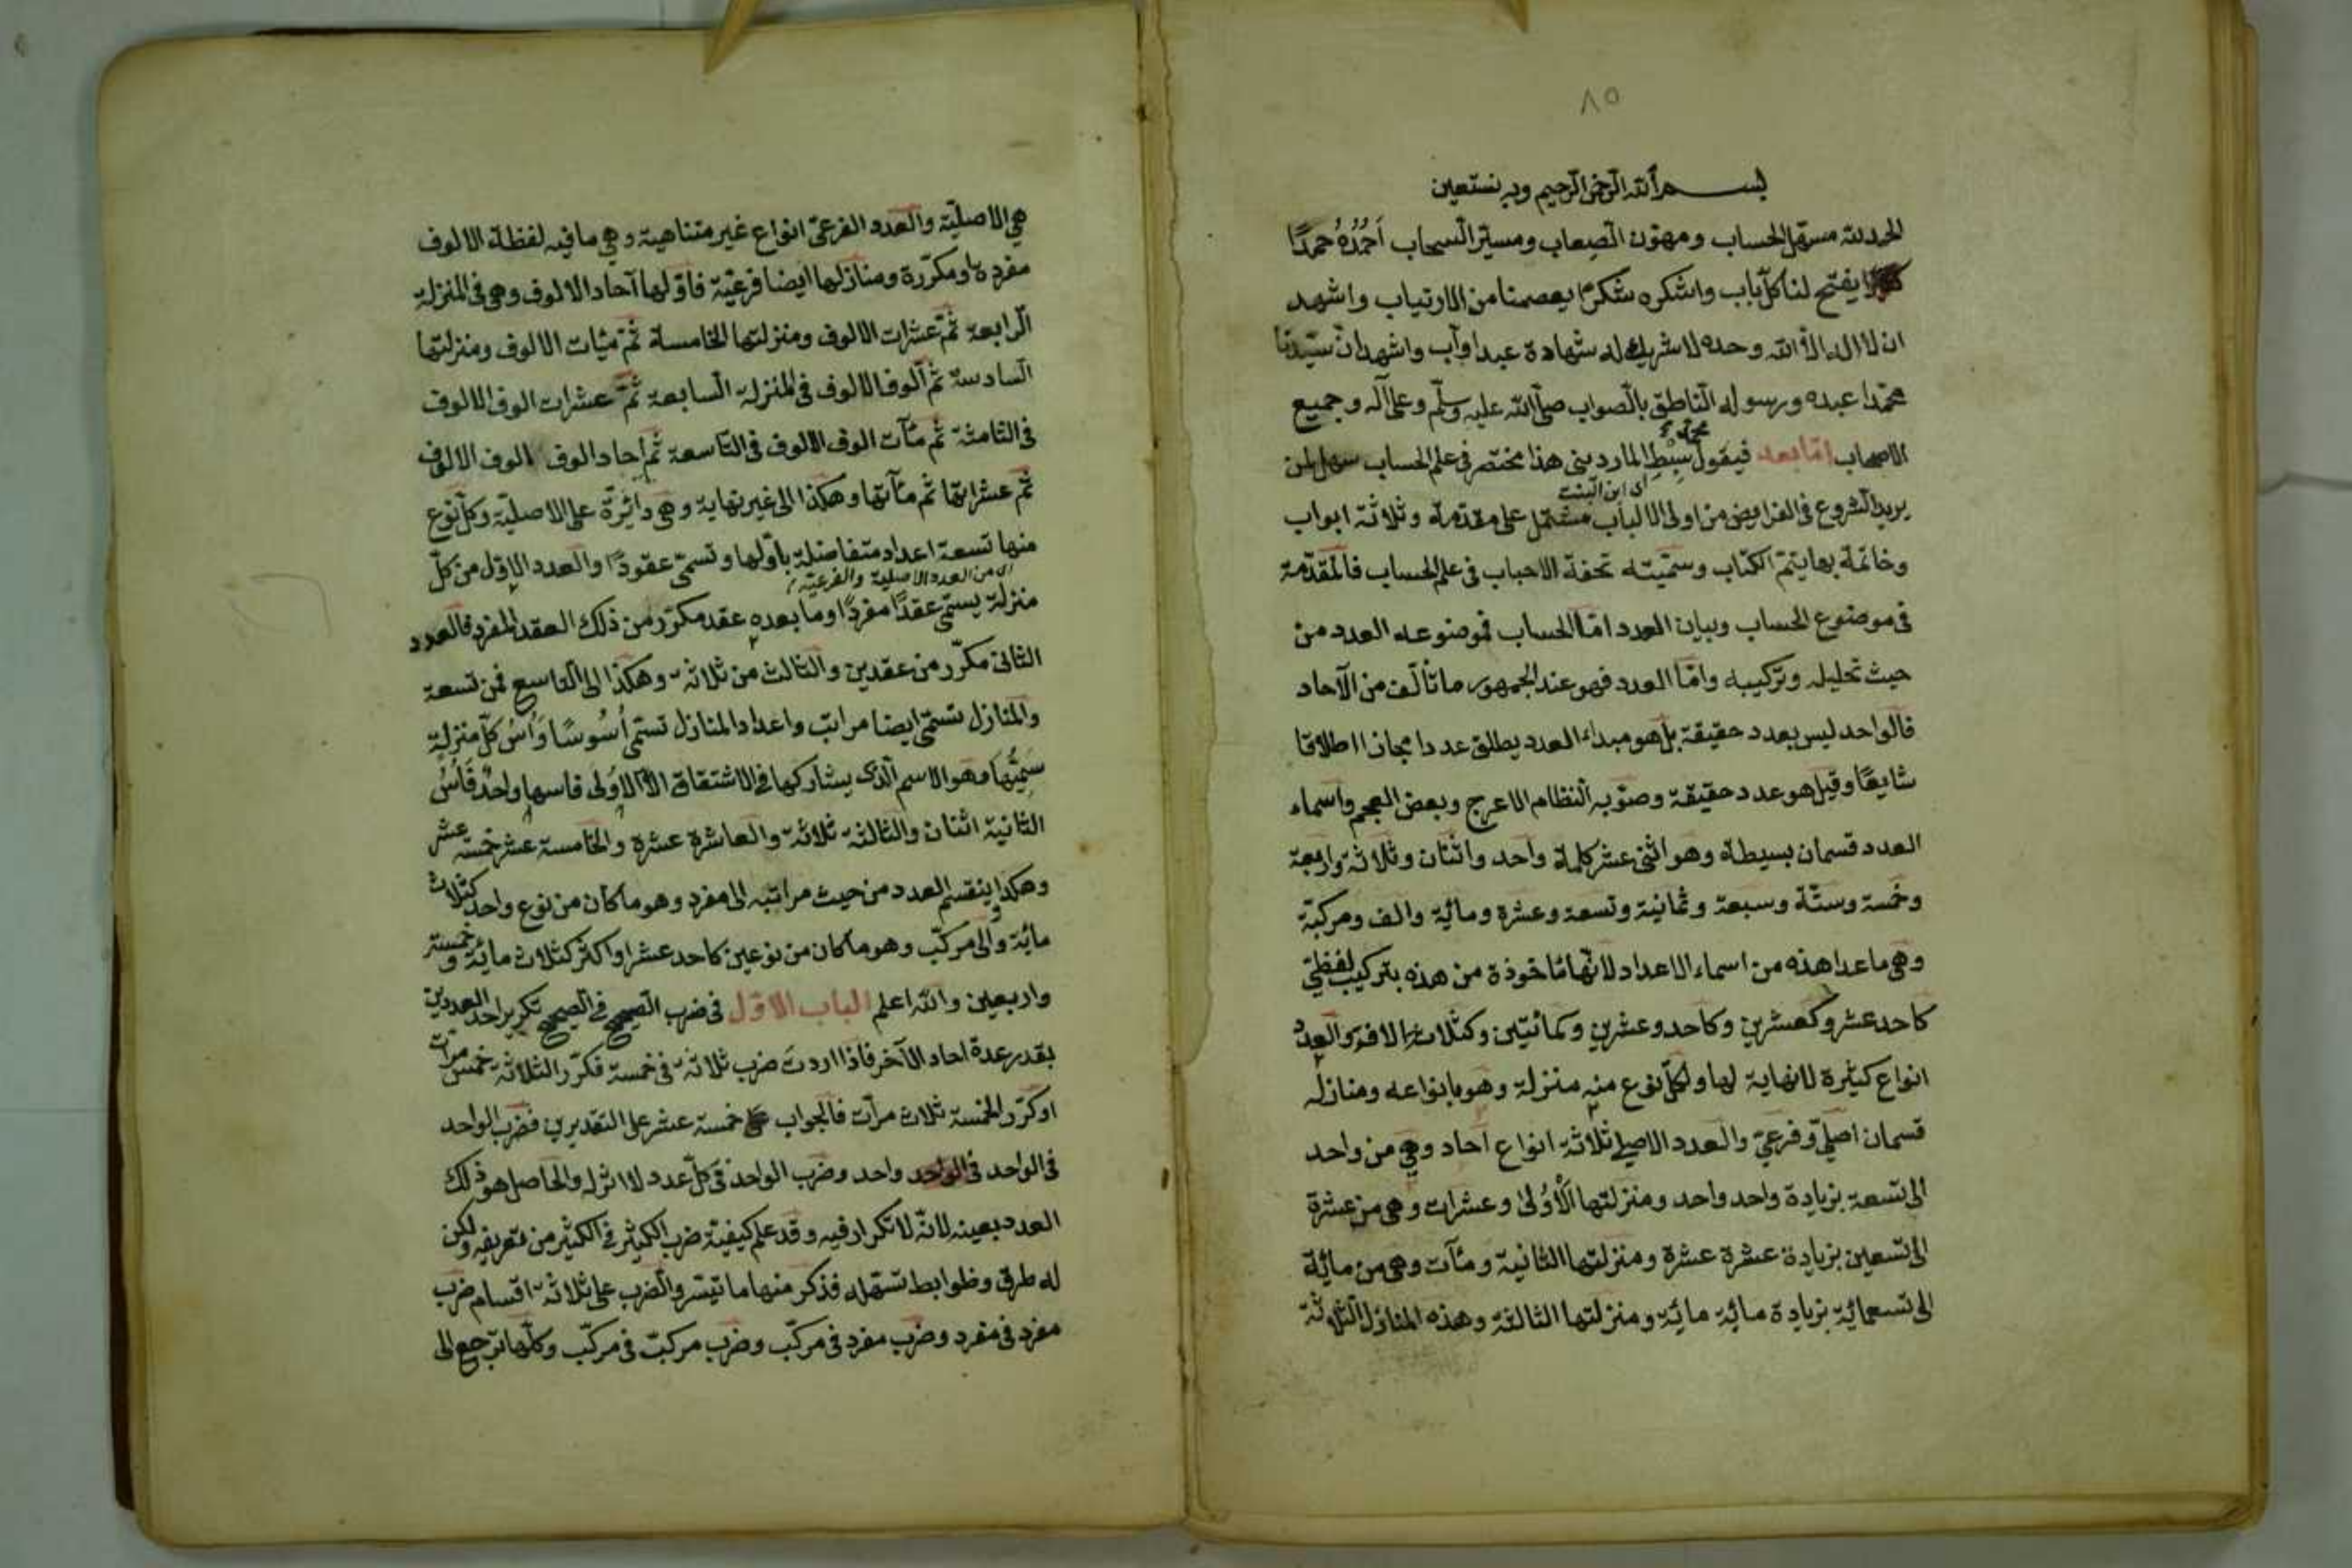 ٨٥
بسم الله الرحمن الرحيم وبه نستعين
الحمد لله مسهل الحساب ومهون الصعاب ومسير السحاب اَحْمَدُهُ حمدًا
يفتح لنا كل باب واشكره شكرا يعصمنا من الارتياب واشهد
ان لا اله الا الله وحده لا شريك له شهادة عبد اوآب واشهد ان سيّدنا
محمّدا عبده ورسوله الناطق بالصواب صلى الله عليه وسلم وعلى آله وجميع
الاصحاب امّا بعد فيقول سِبْط الماردينى هذا مختصر فى علم الحساب سهل لمن
محمد
اى ابن البنت
يريد الشروع فى الفرايض من اولى الالباب مشتمل على مقدمة وثلاثة ابواب
وخاتمة بها يتم الكتاب وسمّيته تحفة الاحباب فى علم الحساب فالمقدّمة
فى موضوع الحساب وبيان العدد امّا الحساب فموضوعه العدد من
حيث تحليله وتركيبه وامّا العدد فهو عند الجمهور ما تألّف من الآحاد
فالواحد ليس بعدد حقيقة بل هو مبداء العدد يطلق عددا مجازا اطلاقا
شايعًا وقيل هو عدد حقيقة وصوّبه النظام الاعرج وبعض العجم واسماء
العدد قسمان بسيطة وهو اثنى عشر كلمة واحد واثنان وثلاثة واربعة
وخمسة وستّة وسبعة وثمانية وتسعة وعشرة ومائة والف ومركبّة
وهى ماعدا هذه من اسماء الاعداد لانّها ماخوذة من هذه بتركيب لفظىّ
كاحد عشر وكعشرين وكاحد وعشرين وكمائتين وكثلاث الاف والعدد
انواع كثيرة لا نهاية لها ولكلّ نوع منه منزلة وهو بانواعه ومنازله
قسمان اصلىّ وفرعىّ والعدد الاصلى ثلاثة انواع آحاد وهى من واحد
الى تسعة بزيادة واحد واحد ومنزلتها الْاُولى وعشرات وهى من عشرة
الى تسعين بزيادة عشرة عشرة ومنزلتها الثانية ومئآت وهى من مائة
الى تسعمائة بزيادة مائة مائة ومنزلتها الثالثة وهذه المنازل الثلاثة
هى الاصليّة والعدد الفرعىّ انواع غير متناهية وهى ما فيه لفظة الالوف
مفردة او مكرّرة ومنازلها ايضا فرعيّة فاوّلها آحاد الالوف وهى فى المنزلة
الرابعة ثمّ عشرات الالوف ومنزلتها الخامسة ثمّ مئات الالوف ومنزلتها
السادسة ثم الوف الالوف فى المنزلة السابعة ثمّ عشرات الوف الالوف
فى الثامنة ثم مئآت الوف الالوف فى التاسعة ثم احاد الوف الوف الالوف
ثم عشراتها ثم مئآتها وهكذا الى غير نهاية وهى دائرة على الاصليّة وكلّ نوع
منها تسعة اعداد متفاضلة باوّلها وتسمّى عقودًا والعدد الاوّل من كلّ
اى من العدد الاصلية والفرعيّة
منزلة يسمّى عقدًا مفردًا وما بعده عقد مكرّر من ذلك العقد المفرد فالعدد
الثانى مكرّر من عقدين والثالث من ثلاثة وهكذا الى التاسع فمن تسعة
والمنازل تسمّى ايضا مراتب واعداد المنازل تسمّى اُسُوسًا وَاُسُّ كلّ منزلة
سَمِيُّها وهو الاسم الذى يشاركها فى الاشتقاق الّا الاُولى فاسها واحدٌ فَاُسُّ
الثانية اثنان والثالثة ثلاثة والعاشرة عشرة والخامسة عشر خمسة عشر
وهكذا وينقسم العدد من حيث مراتبه الى مفرد وهو ما كان من نوع واحد كثلاث
مائة والى مركّب وهو ما كان من نوعين كاحد عشر او اكثر كثلاث مائة وخمسة
واربعين والله اعلم الباب الاوّل فى ضرب الصحيح فى الصحيح تكرير احد العددين
بقدر عدة احاد الآخر فاذا اردت ضرب ثلاثة فى خمسة فكرّر الثلاثة خمس مرات
او كرّر الخمسة ثلاث مرآت فالجواب خمسة عشر على التقديرين فضرب الواحد
فى الواحد واحد وضرب الواحد فى كلّ عدد لا اثر له والحاصل هو ذلك
العدد بعينه لانّه لا تكرار فيه وقد علم كيفيّة ضرب الكثير فى الكثير من تعريفه ولكن
له طرق وظوابط تسهله فذكر منها ما تيسّر والضرب على ثلاثة اقسام ضرب
مفرد فى مفرد وضرب مفرد فى مركّب وضرب مركبّ فى مركّب وكلّها ترجع الى